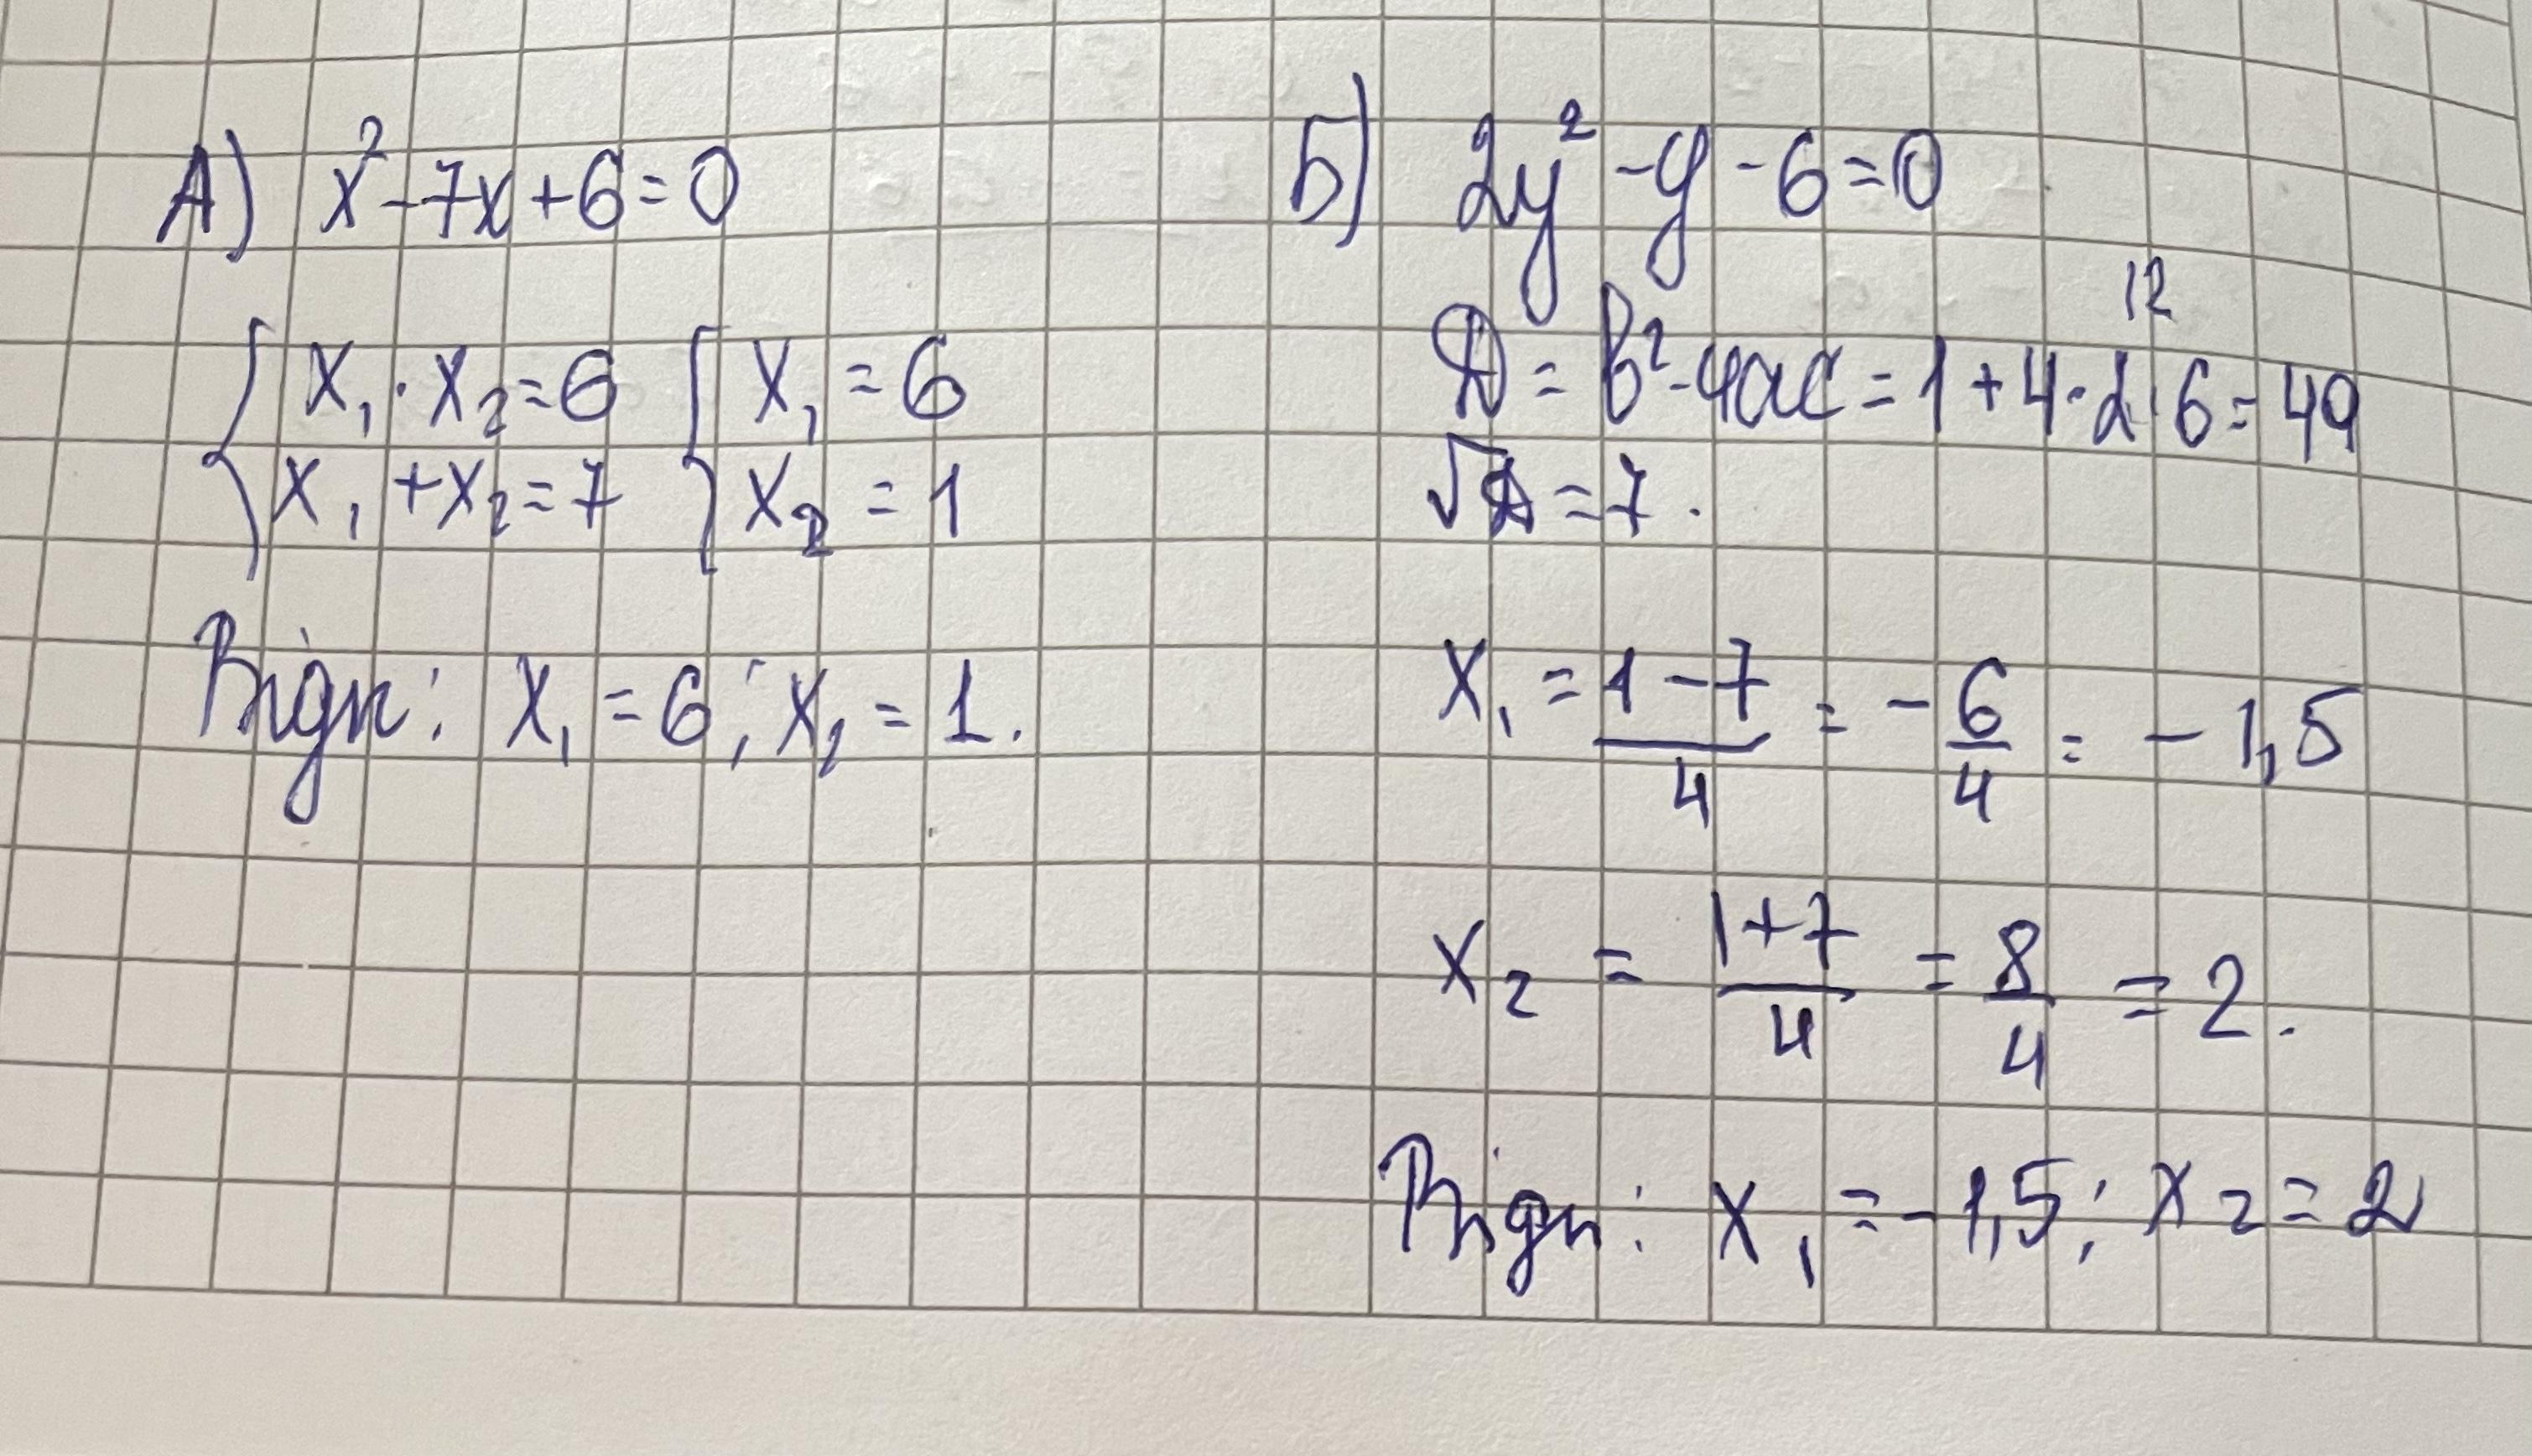 А) x² - 7x + 6 = 0
{ x₁ · x₂ = 6 { x₁ = 6
x₁ + x₂ = 7 x₂ = 1
Відп: x₁ = 6; x₂ = 1.
Б) 2y² - y - 6 = 0
12
D = b² - 4ac = 1 + 4 · 2 · 6 = 49
√D = 7.
x₁ = (1 - 7)/4 = - 6/4 = - 1,5
x₂ = (1 + 7)/4 = 8/4 = 2.
Відп: x₁ = - 1,5; x₂ = 2